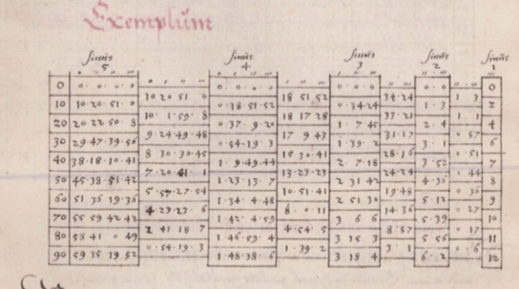 Exemplum
sinus sinus sinus sinus sinus
5 4 3 2 1
0 0 · 0 · 0 · 0 0 · 0 · 0 · 0 0 · 0 · 0 0 · 0 0
10 20 51 0 18 51 52 34·24 1 3
10 10·20·51·0 0·18·51·52 0·34·24 1·3 2
10 1·59·8 18 17 28 33·21 1
20 20·22·50·8 0·37·9·20 1·7 45 2·4 4
9·24·49·48 17 9 43 31·17 0 57
30 29 47·39·56 0·54·19·3 1·39·2 3·1 6
8 30·30·45 15 30·41 28·16 0 51
40 38·18·10·41 1·9·49·44 2·7·18 3·52 7
7·20·41·1 13·23·23 24·24 0 44
50 45·38·51·42 1·23·13·7 2 31 42 4·36 8
5·57·27·54 10·51·41 19·48 0 36
60 51 36 19·36 1·34·4·48 2 51 30 5 12 9
4·23·23·6 8·0·11 14·36 0 27
70 55 59 42 42 1·42·4·59 3 6 6 5·39 10
2 41 18 7 4·54·5 8·57 0·17
80 58 41·0 49 1·46·59·4 3 15 3 5 56 11
0·54·19·3 1·39·2 3·1 0·6
90 59 35 19 52 1·48·38·6 3 18 4 6·2 12